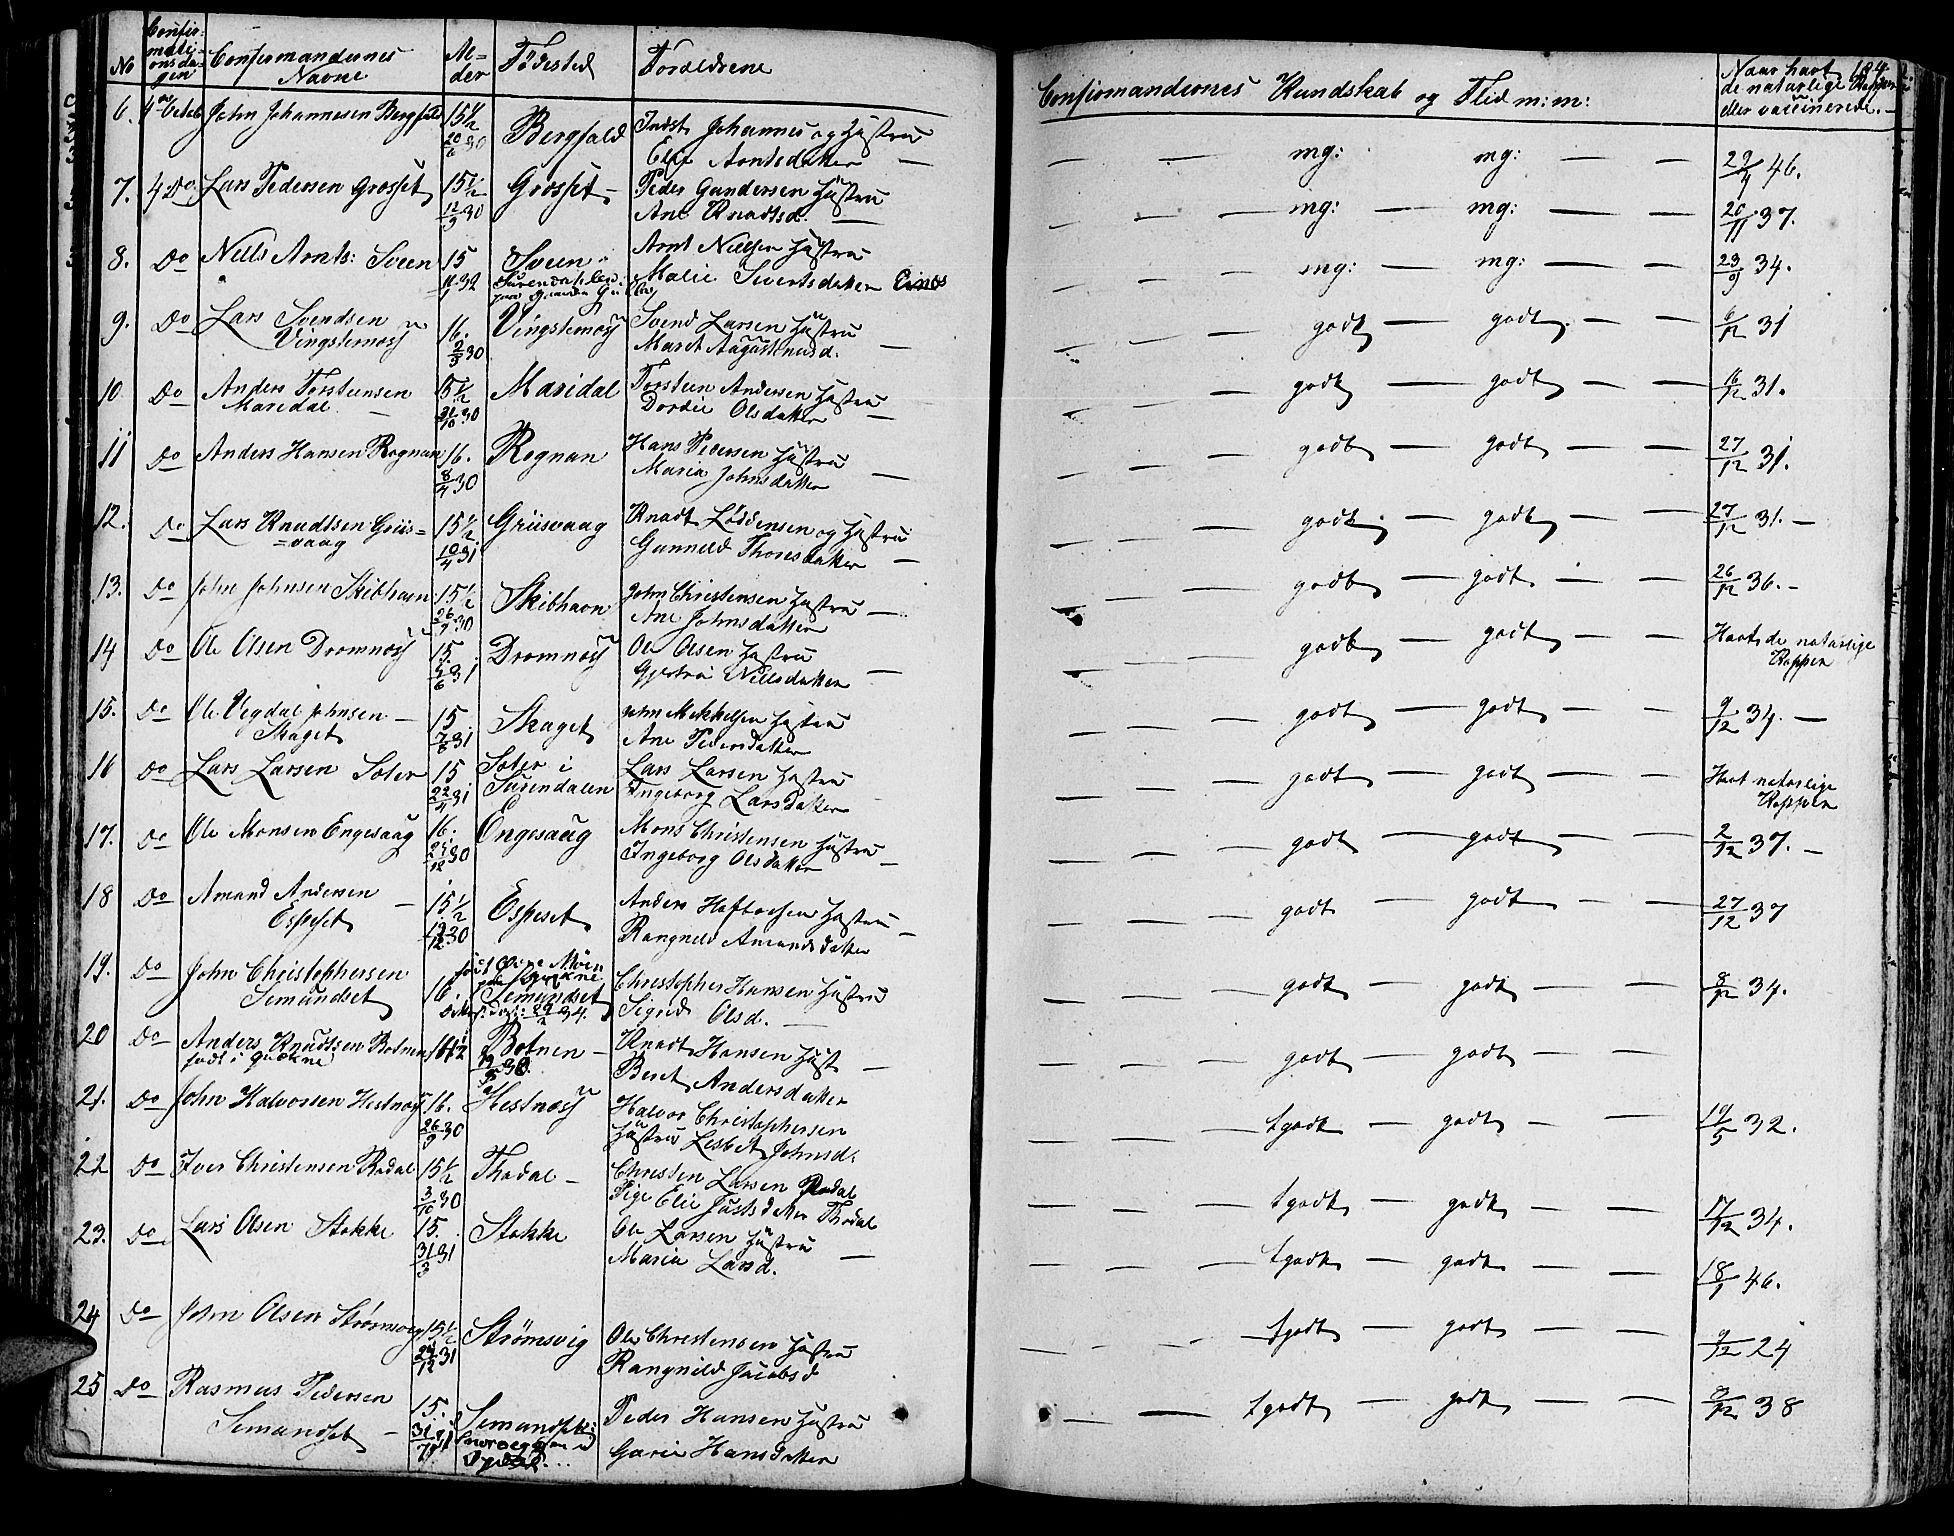 No Confirmationsdagen Confirmandernes Navne Alder Fødested Foreldrene
Confirmandernes Kundskab og Flid m: m:
Naar havt de naturlige Kopper eller vaccinerede.
6. 4de Octob John Johannesen Bergfald 15 1/2 20/6 30 Bergfald Indst Johannes og Hustru
Elie Arntsdatter — mg: mg: — — 29/4 46.
7. 4 Do Lars Pedersen Grosset 15 1/2 12/3 30 Grosset — Peder Gundersen Hustru
Ane Knudtsd. — mg: — mg: — — 20/11 37.
8. Do Nills Arnts: Sveen 15 Sveen Arnt Nielsen Hustru
Malie Sivertsdatter — mg: — mg: — — 23/9 34.
9. Do Lars Svendsen 16. Vingsternæs Svend Larsen Hustru
Vingstemæs 2/3 30 Maret Augustinusd. — godt — godt — — 6/12 31
10. Do Anders Torsteensen 15 1/2 Maridal Torsteen Andersen Hustru
Maridal — 21/10 30 Dordie Olsdatter — godt — godt — — 16/12 31.
11 Do Anders Hansen Rognan 16. Rognan Hans Pedersen Hustru
8/4 30 Maria Johnsdatter — godt — godt — — 27/12 31.
12. Do Lars Knudtsen Griis= 15 1/2 Griisvaag Knudt Løddensen og Hustru
=vaag 10/4 31 Gunnild Thoresdatter — godt — godt — — 27/12 31. —
13. Do John Johnsen Skibhavn 15 1/2 Skibhavn John Christensen Hustru —
26/9 30 Ane Johnsdatter godt — godt — 26/12 36. —
14 Do Ole Olsen Dromnæs 15. Dromnæs Ole Olsen Hustru
2/6 31 Nielsdatter — godt — godt — — Havt de naturlige
Kopper
15. Do Ole Vegdal Johnsen — 15 Skaget John Mekkelsen Hustru
Skaget 7/6 31 Ane Pedersdatter godt — godt — — 9/12 34. —
16 Do Lars Larsen Soter 15 Soter i Lars Larsen Hustru
22/4 31 Surendalen Ingeborg Larsdatter — godt — godt — — Havt naturlige
Kopper
17. Do Ole Monsen Engesaug 16. Engesaug Mons Christensen Hustru
30 Ingeborg Olsdatter — godt — godt — — 2/12 37. —
18 Do Amund Andersen — 15 1/2 Espeset Anders Hustru
Espeset 19/12 30 Rangnild Amundsdatter — godt — godt — — 27/12 37
19. Do John Christophersen 16 Semundset Christopher Hansen Hustru
Semundset Sigrid Olsd. — godt — godt — — 8/12 34.
20 Do Anders Knudtsen Botnen 16 1/2 Botnen — Knudt Hansen Hust
født i Qvekne Beret Andersdatter — godt — godt — —
21. Do John Halvorsen Hestnæs 16. Hestnæs Halvor Christophersen
26/9 30 Hustru Lesbet Johnsd. tgodt — godt — — 19/5 32.
22 Do Iver Christensen Rødal 15 1/2 Thodal — Christen Larsen Rødal
3/10 30 Pige Elie Justsdatter Thodal — tgodt — godt — — 17/12 34.
23. Do Lars Olsen Stokke 15. Stokke Ole Larsen Hustru
31/3 31 Maria Larsd. — tgodt — godt — — 18/1 46.
24 Do John Olsen Strømsvig 15 1/2 Strømsvig Ole Christensen Hustru
24/12 31 Rangnild Jacobsd — tgodt — godt — — 9/12 24
25 Do Rasmus Pedersen 15. Semundset: Peder Hansen Hustru
Semundset — Garie Hansdatter — tgodt — godt — — 8/12 38